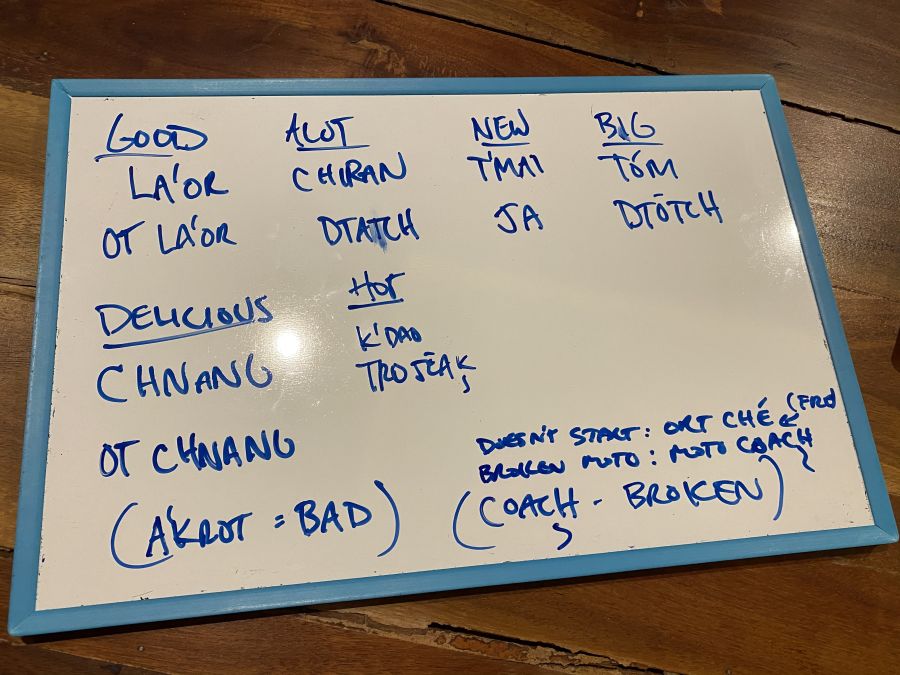 GOOD ALOT NEW BIG
LA'OR CHIRAN T'MAI TÓM
OT LA'OR DTATCH JA DTŌTCH
DELICIOUS HOT
CHNANG K'DAO
TROJĒAK
OT CHNANG
DOESN'T START: ORT CHÉ
BROKEN MOTO: MOTO COACH
(A'KROT = BAD) (COACH - BROKEN)